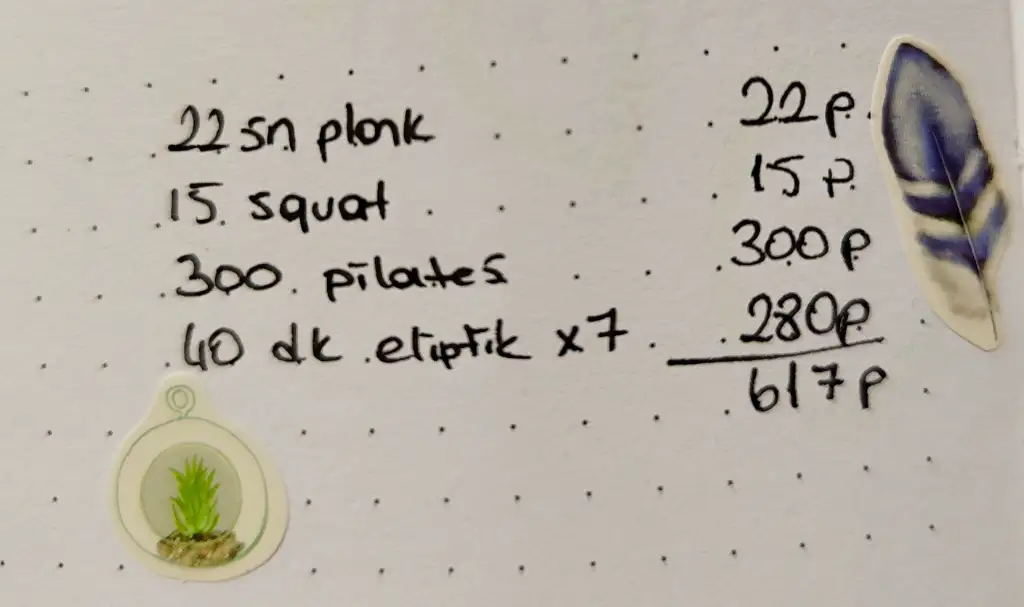 22 sn plank 22 p.
15 squat 15 p.
300 pilates 300 p
40 dk eliptik x7 280p
617 p